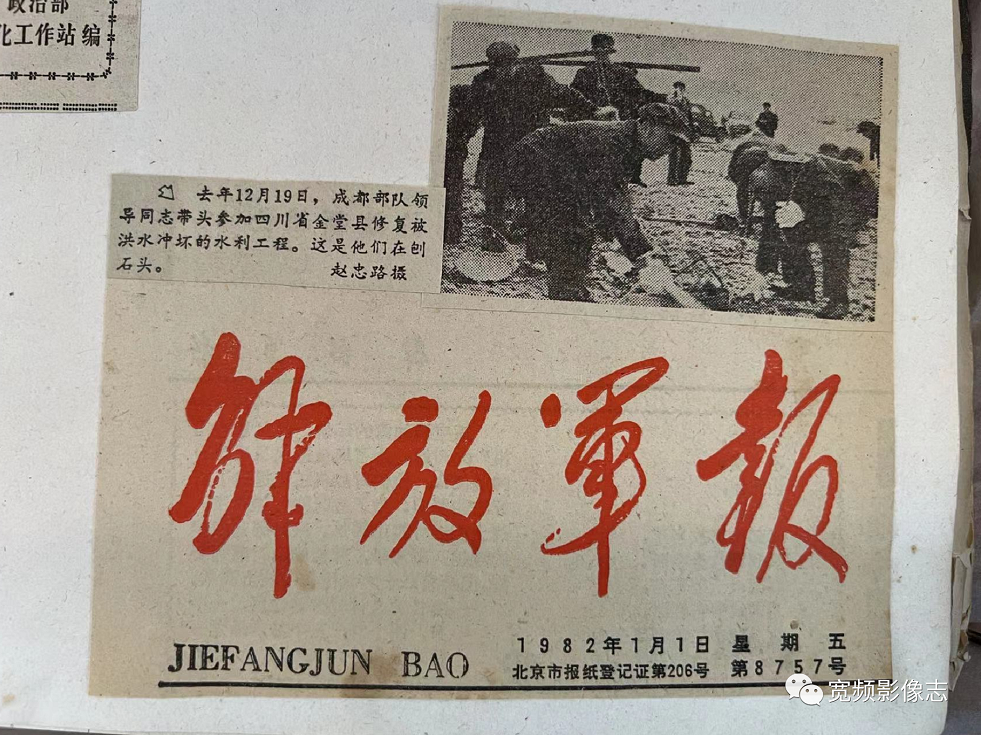 政治部
化工作站 编
去年12月19日，成都部队领
导同志带头参加四川省金堂县修复被
洪水冲坏的水利工程。这是他们在刨
石头。 赵忠路摄
解放军报
JIEFANGJUN BAO
1982年1月1日 星期五
北京市报纸登记证第206号 第8757号
宽频影像志